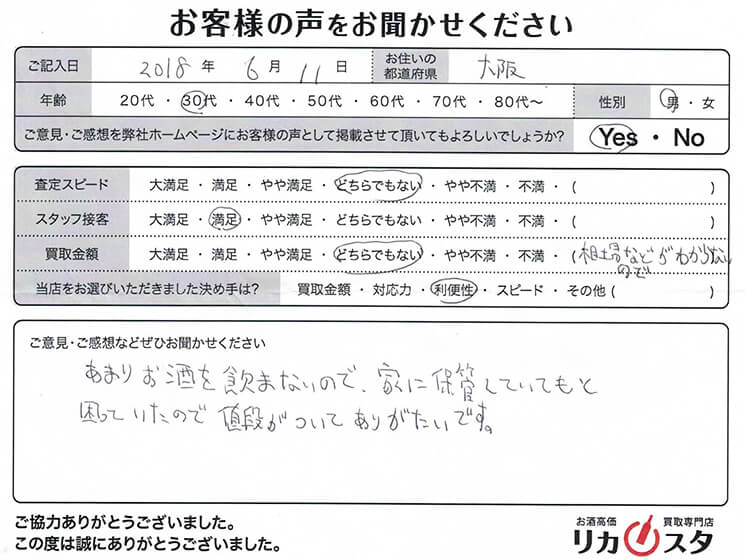 お客様の声をお聞かせください
ご記入日 2018 年 6 月 11 日 お住いの都道府県 大阪
年齢 20代 ・ 30代 ・ 40代 ・ 50代 ・ 60代 ・ 70代 ・ 80代〜 性別 男 ・ 女
ご意見・ご感想を弊社ホームページにお客様の声として掲載させて頂いてもよろしいでしょうか? Yes ・ No
査定スピード 大満足 ・ 満足 ・ やや満足 ・ どちらでもない ・ やや不満 ・ 不満 ・ ( )
スタッフ接客 大満足 ・ 満足 ・ やや満足 ・ どちらでもない ・ やや不満 ・ 不満 ・ ( )
買取金額 大満足 ・ 満足 ・ やや満足 ・ どちらでもない ・ やや不満 ・ 不満 ・ (相場などがわからない
ので
当店をお選びいただきました決め手は? 買取金額 ・ 対応力 ・ 利便性 ・ スピード ・ その他 ( )
ご意見・ご感想などぜひお聞かせください
あまりお酒を飲まないので、家に保管していてもと
困っていたので値段がついてありがたいです。
ご協力ありがとうございました。
この度は誠にありがとうございました。
お酒高価 買取専門店
リカスタ